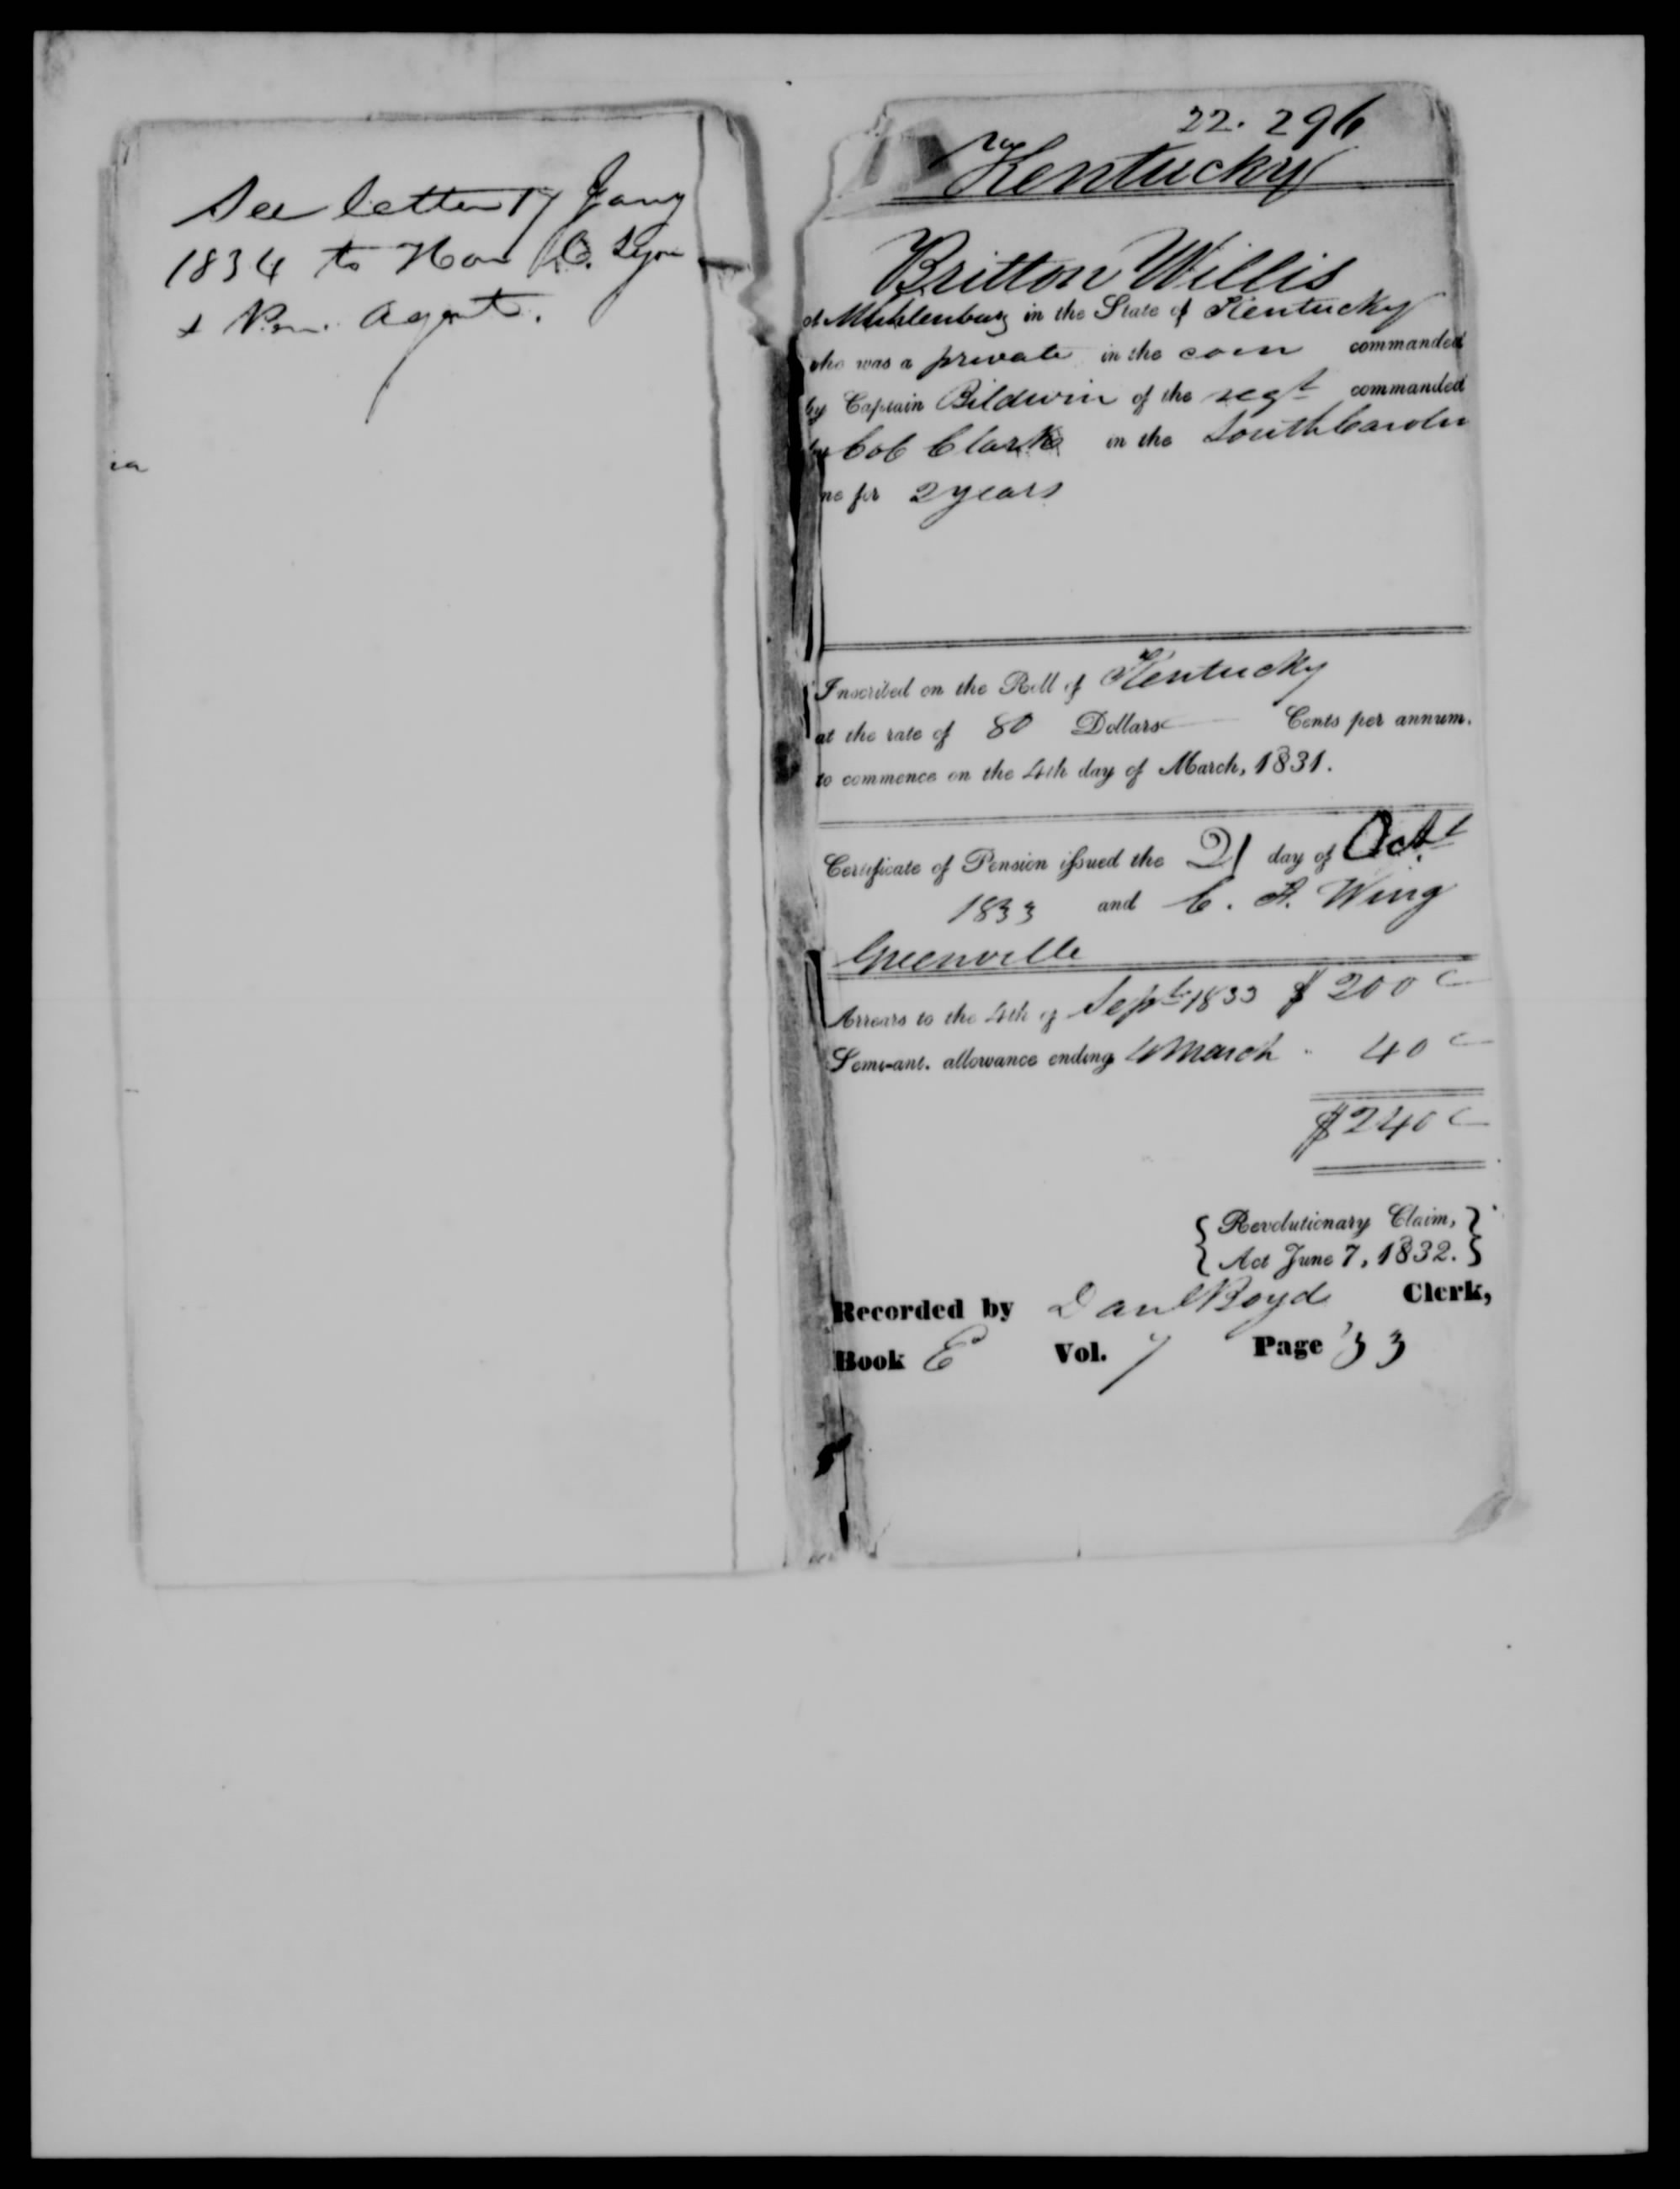 See letter 17 Jany
1834 to Hon C. Lyon
& Pen. Agent.
22.296
Kentucky
Britton Willis
of Muhlenburg in the State of Kentucky
who was a private in the com commanded
by Captain Bildwin of the regt commanded
by Col Clark in the South Carolin
ne for 2 years
Inscribed on the Roll of Kentucky
at the rate of 80 Dollars Cents per annum.
to commence on the 4th day of March, 1831.
Certificate of Pension issued the 21 day of Oct
1833 and C. F. Wing
Greenville
Arrears to the 4th of Septr 1833 $ 200
Semi-anl. allowance ending 4 March " 40
$240
{ Revolutionary Claim, }
{ Act June 7, 1832. }
Recorded by Danl Boyd Clerk,
Book E Vol. 7 Page 33